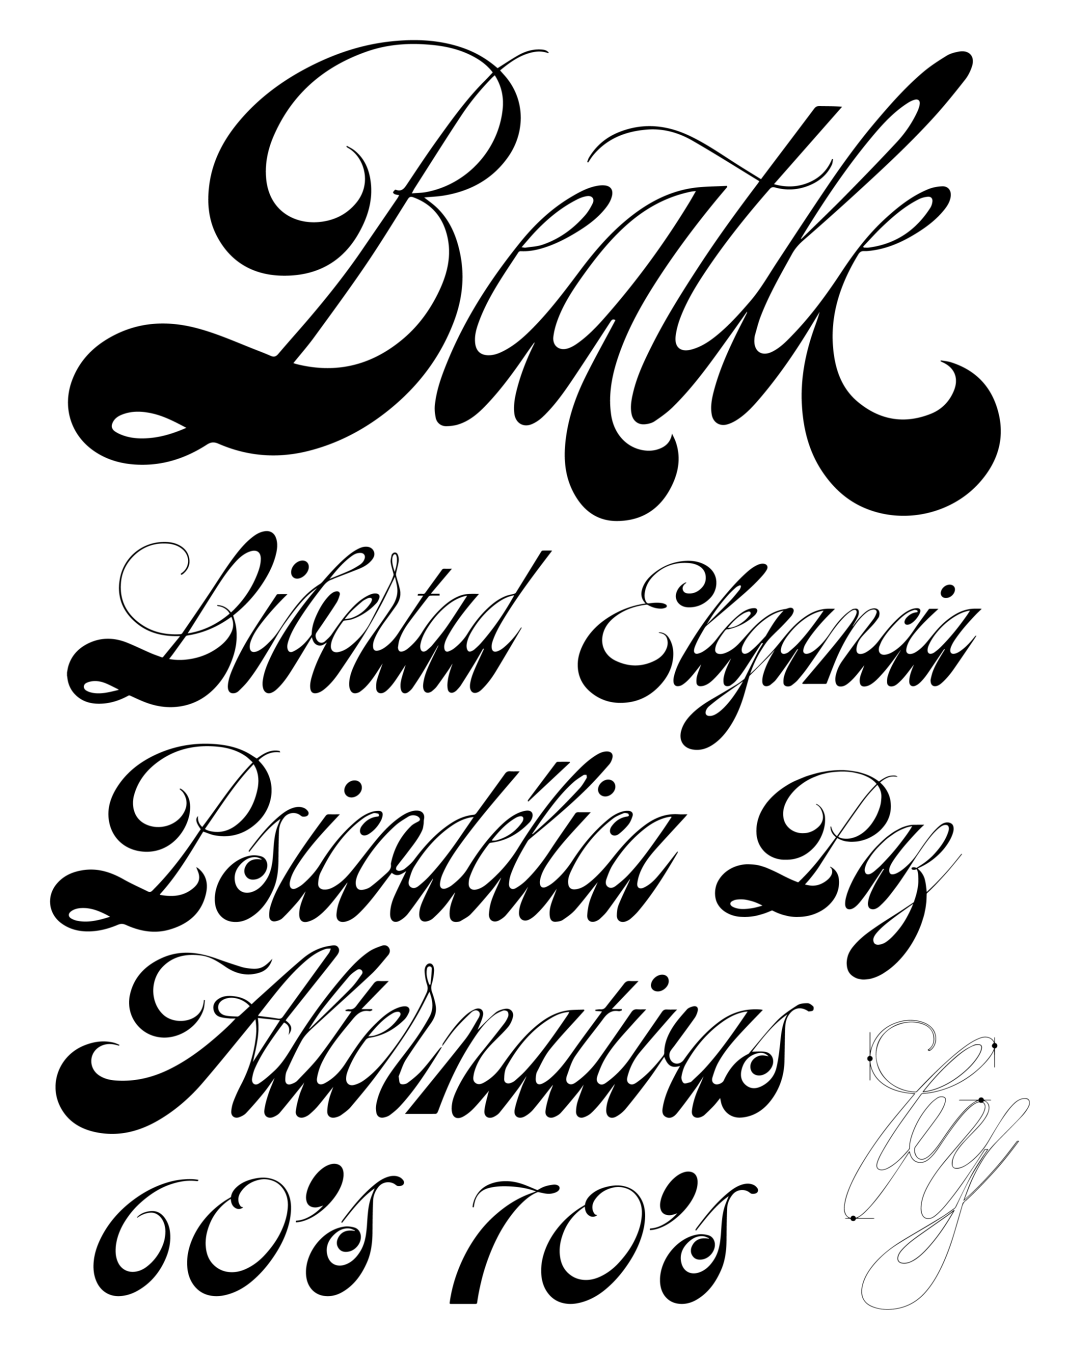 Beatle
Libertad Elegancia
Psicodélica Paz
Alternativas
60's 70's